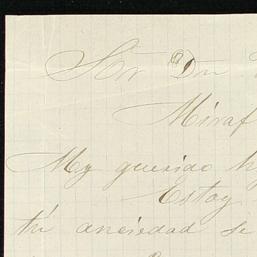 Sor Don
Miraf
My querido h
Estoy
tú ansiedad se